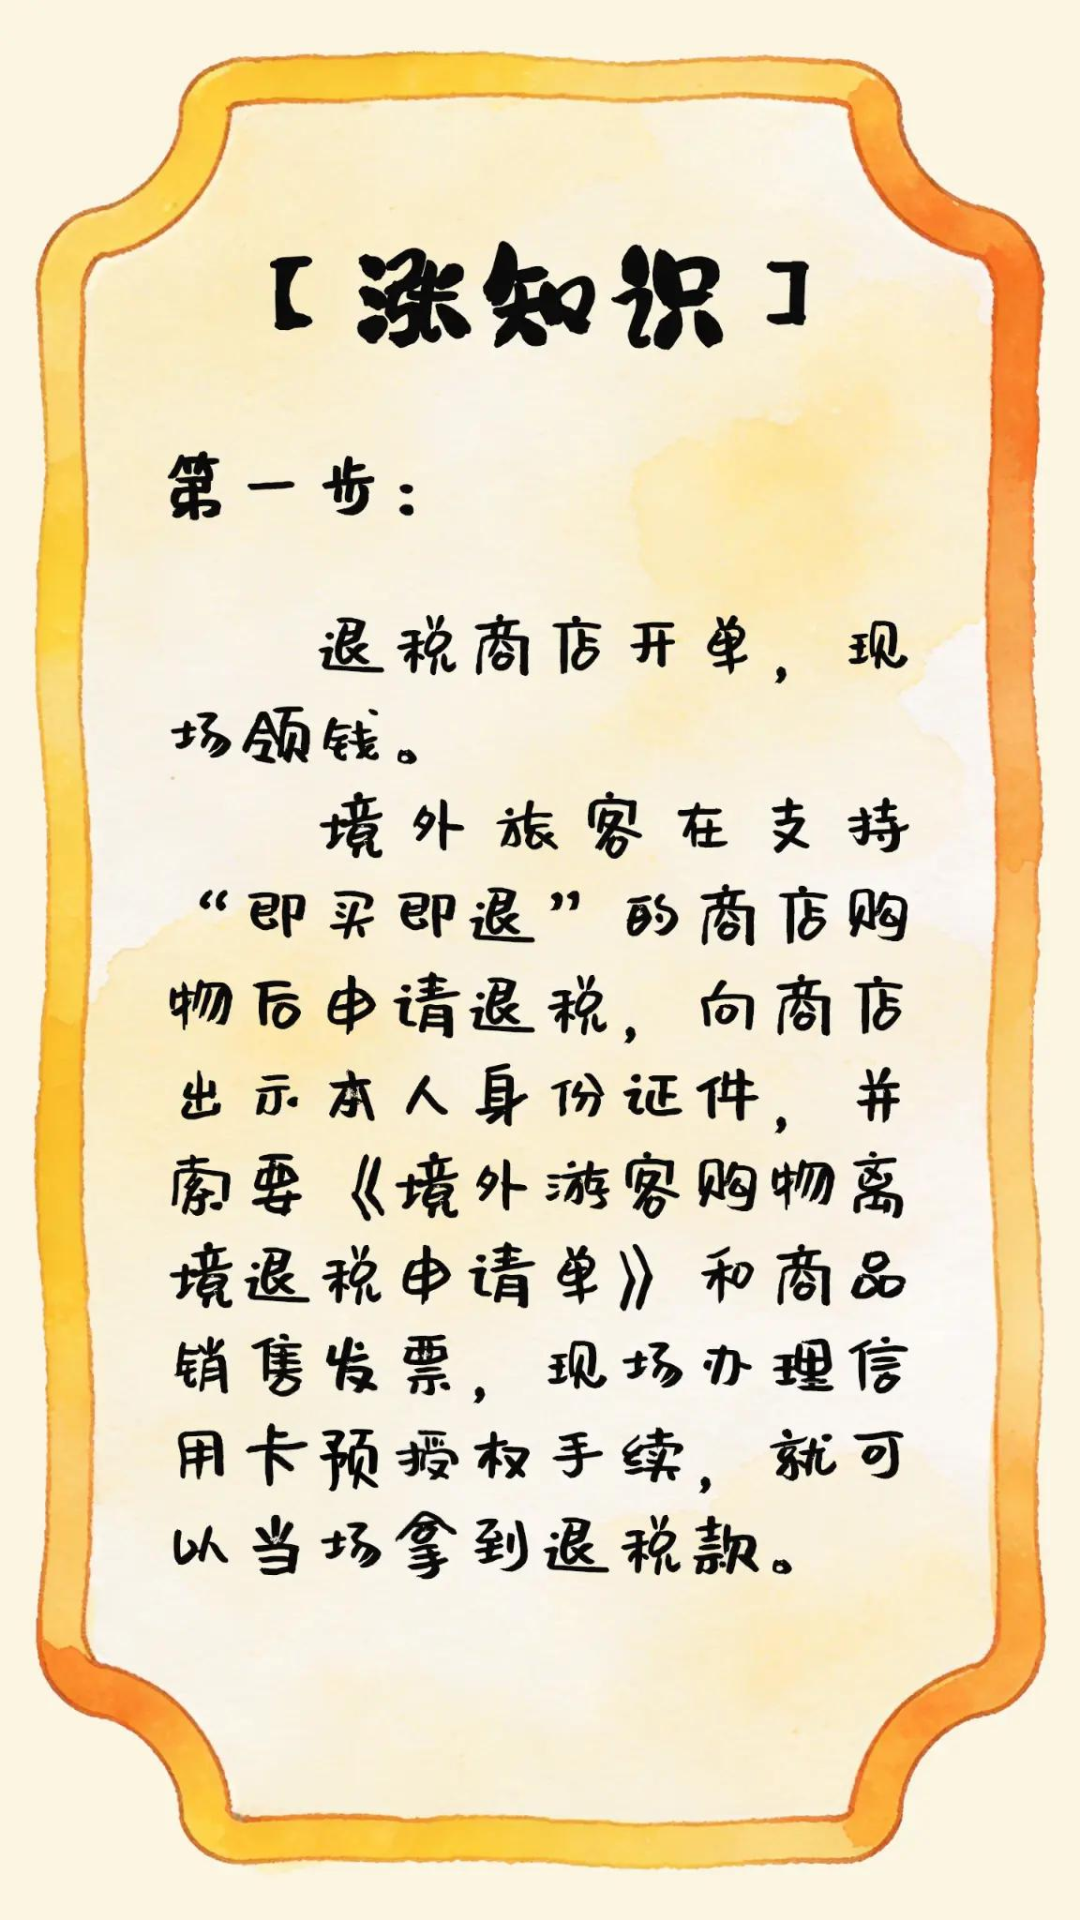 【涨知识】
第一步：
退税商店开单，现
场领钱。
境外旅客在支持
“即买即退”的商店购
物后申请退税，向商店
出示本人身份证件，并
索要《境外游客购物离
境退税申请单》和商品
销售发票，现场办理信
用卡预授权手续，就可
以当场拿到退税款。